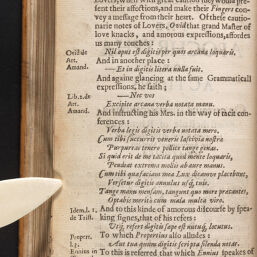 Lovers, when with great caution they would pre-
sent their affections, and make their Fingers con-
vey a message from their heart. Of these cautio-
nary notes of Lovers, Ovid that grand Master of
love knacks, and amorous expressions, affordes
us many touches:
Ovid de Art. Amand.
Nil opus est digitis per quos arcana loquaris,
And in another place:
—Et in digitis litera nulla fuit.
And againe glancing at the same Grammaticall
expressions, he saith;
Lib.2.de Art. Amand.
—Nec vos
Excipite arcana verba notata manu.
And instructing his Mrs. in the way of their con-
ferences:
Verba legis digitis verba notata mero.
Cum tibi succurrit veneris lascivia nostræ
Purpureas tenero pollice tange genas.
Si quid erit de me tacita quod mente loquaris,
Pendeat extrema mollis ab aure manus.
Cum tibi quæ faciam mea Lux dicamve placebunt,
Versetur digitis annulus usq; tuis.
Tange manu mensam, tangunt quo more precantes,
Optabis merito cum mala multa viro.
Idem.l. 2. de Trist.
And to this kinde of amorous discourse by spea-
king signes, that of his refers:
Utq; refert digitis sæpe est nutuq; locutus.
Propert. l.3.
To which Propertius also alludes:
Aut tua quum digitis scripta silenda notas.
Ennius in
To this is referred that which Ennius speakes of